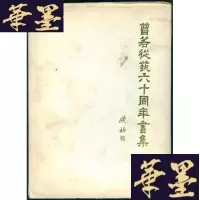 曹若從藝六十周年書集
華墨
華墨